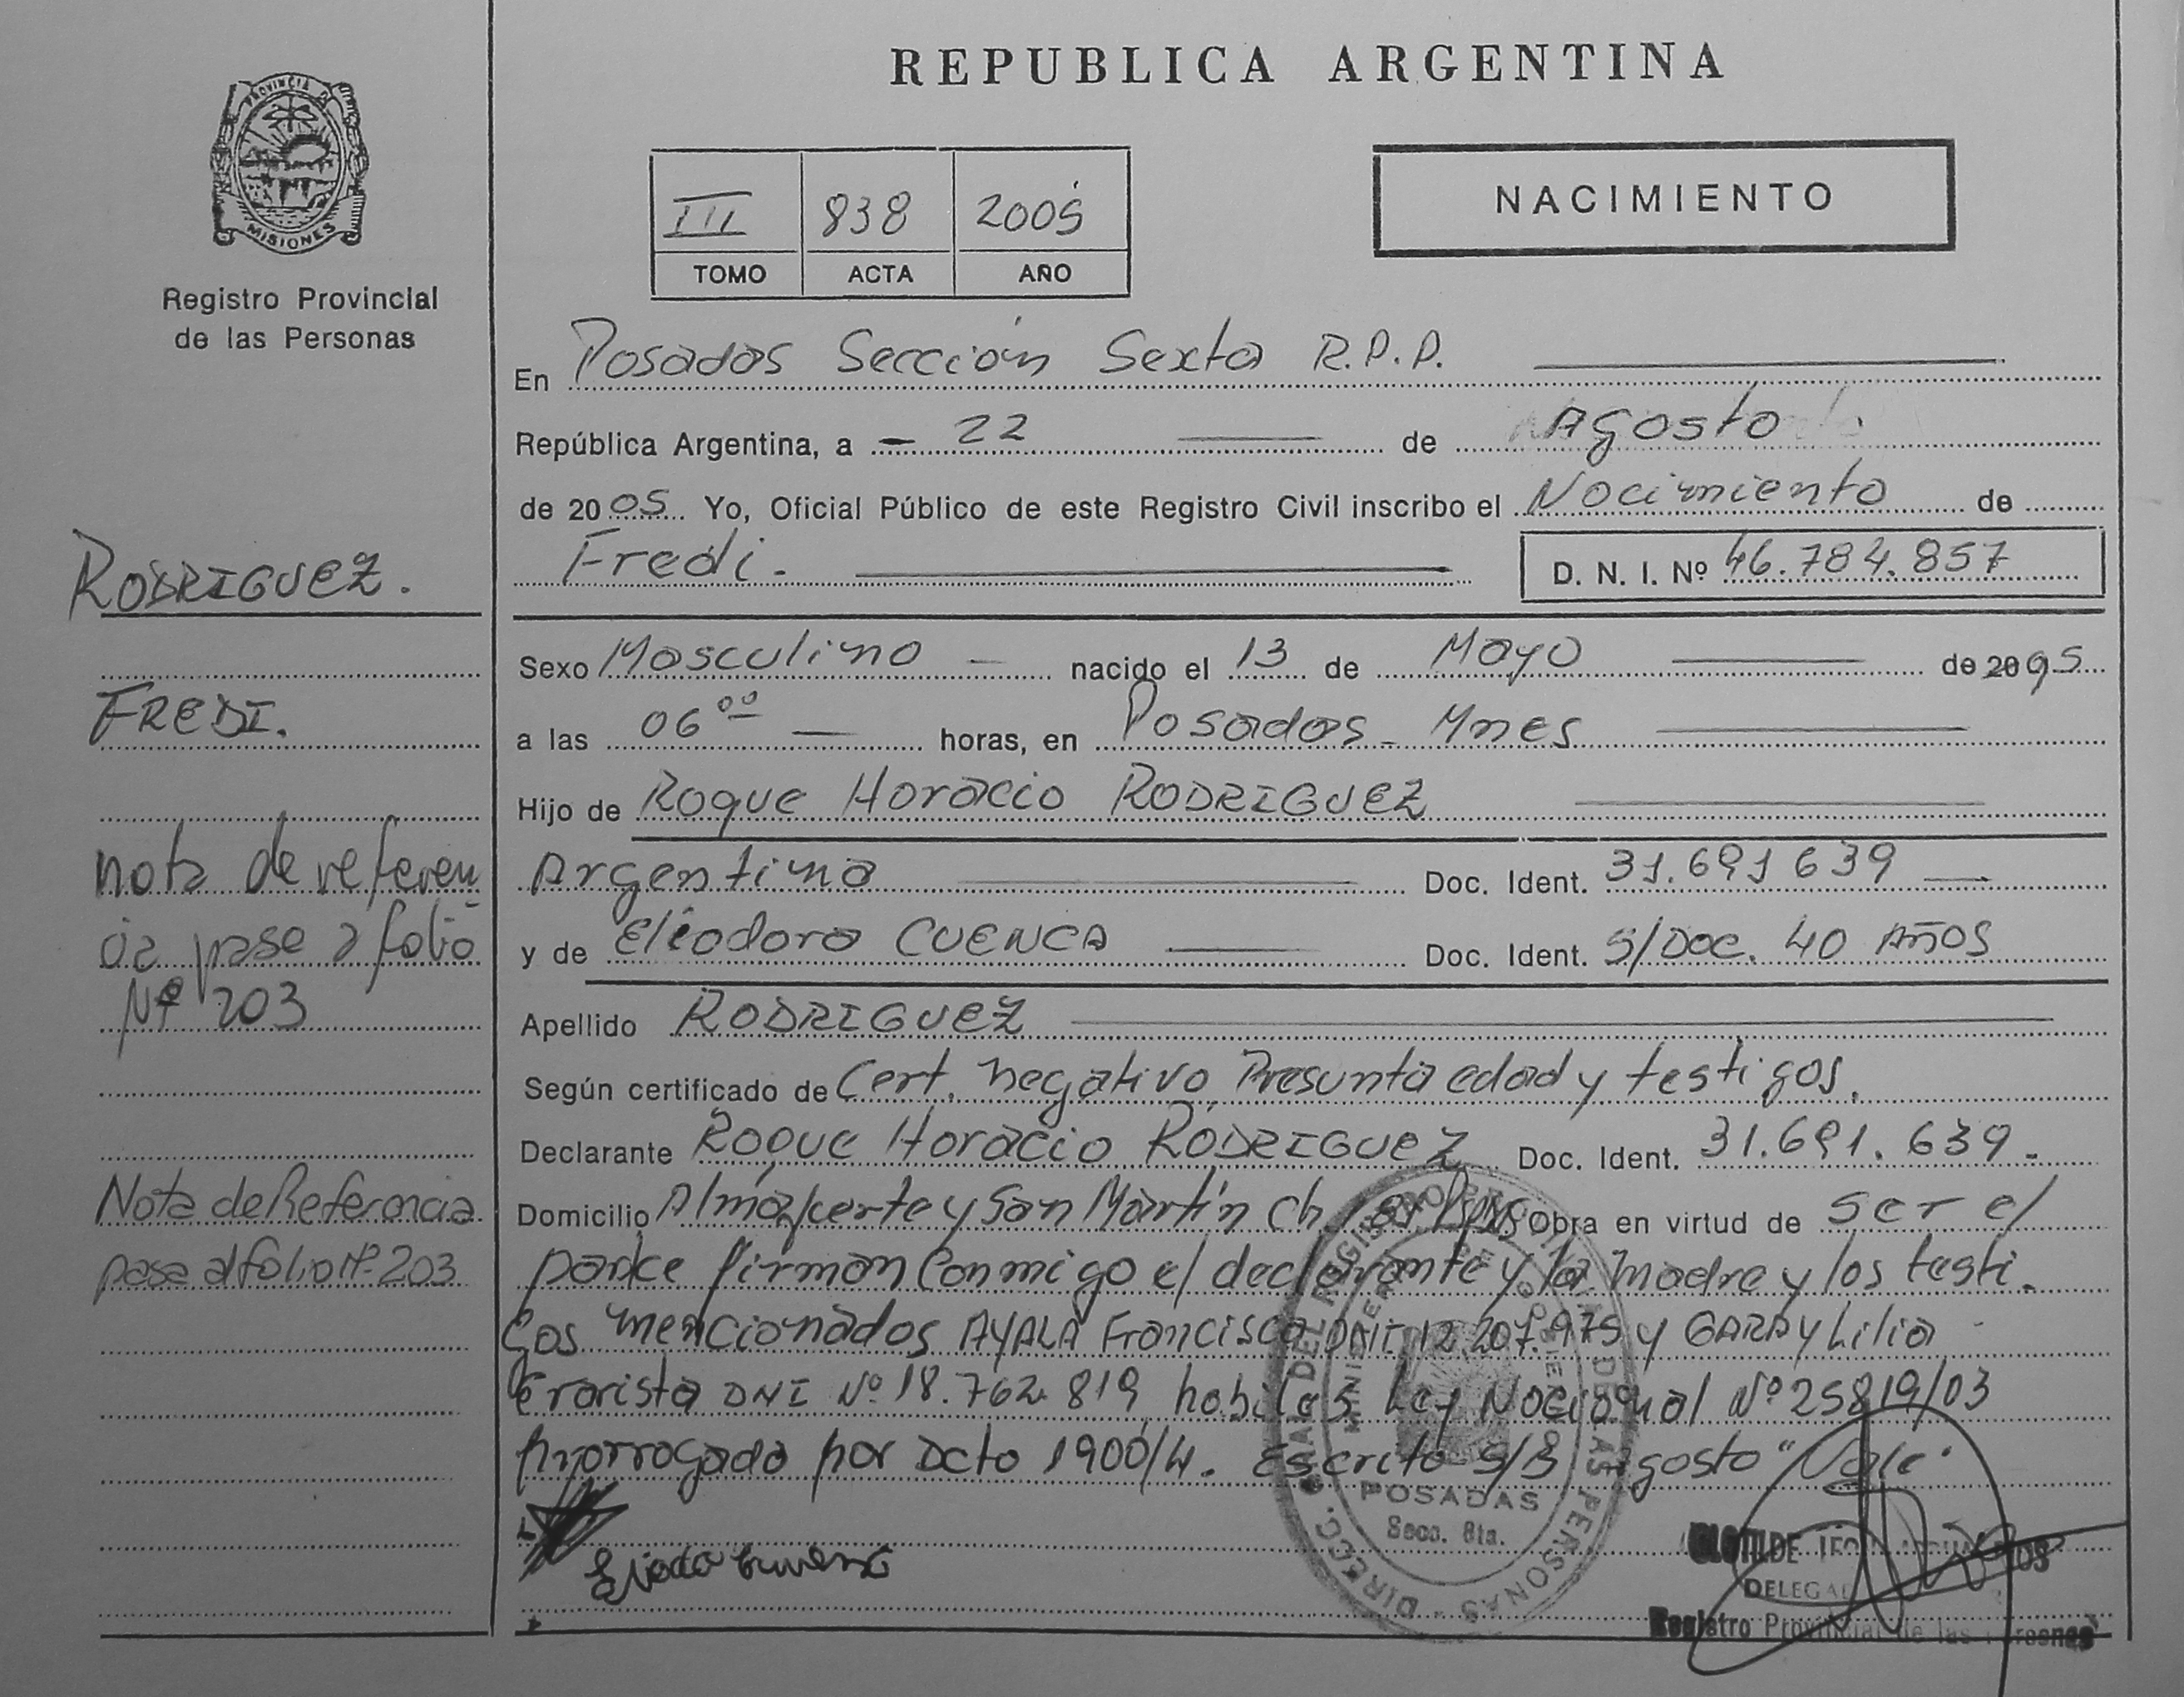 REPUBLICA ARGENTINA
PROVINCIA DE
MISIONES
Registro Provincial
de las Personas
III 838 2005
TOMO ACTA AÑO
NACIMIENTO
En Posadas Sección Sexta R.P.P.
República Argentina, a 22 de Agosto
de 2005 Yo, Oficial Público de este Registro Civil inscribo el Nacimiento de
Fredi. D. N. I. Nº 46.784.857
Sexo Masculino nacido el 13 de Mayo de
a las 06 00 horas, en Posadas - Mnes
Hijo de Roque Horacio RODRIGUEZ
Argentina Doc. Ident. 31.691 639
y de Eleodora CUENCA Doc. Ident. S/Doc. 40 AÑOS
Apellido RODRIGUEZ
Según certificado de Cert. negativo, Presunta edad y testigos.
Declarante Roque Horacio RODRIGUEZ Doc. Ident. 31.691.639.
Domicilio Almafuerte y San Martín Ch. Obra en virtud de ser el
padre firman conmigo el declarante y la madre y los testi.
gos mencionados AYALA Francisca DNI 12.207.975 y GARAY Lilia
DNI Nº 18.762.819 Ley Nacional Nº 25819/03
prorrogado por Dcto 1900/4. Escrito S/B Agosto "Vale"
RODRIGUEZ.
FREDI.
nota de referen
cia pase a folio
Nº 203
Nota de Referencia
pase al folio Nº 203
POSADAS
Secc. 6ta.
CLOTILDE
DELEGAD
Registro Provincial de las Personas